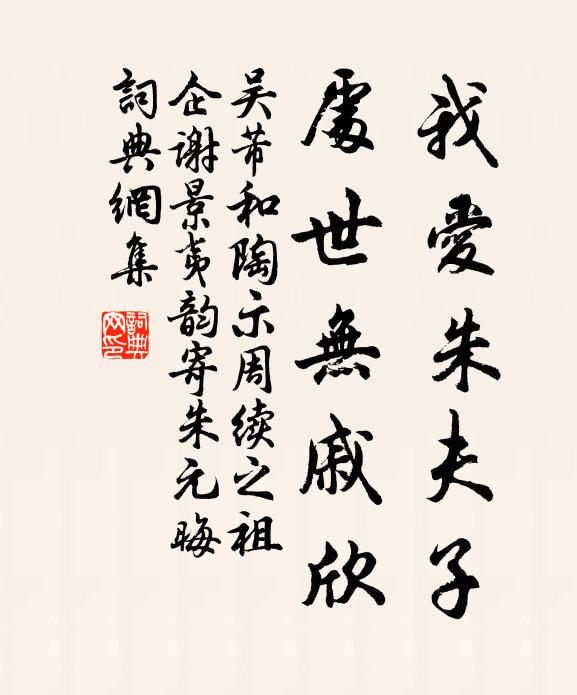 我愛朱夫子
處世無戚欣
吴芾和陶示周续之祖
企谢景夷韵寄朱元晦
詞典網集
詞典网印